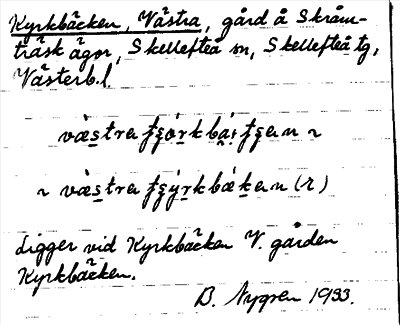 Kyrkbäcken, Västra, gård å Skråm-
träsk ägor, Skellefteå sn, Skellefteå tg,
Västerb.l.
västra
västra
Ligger vid Kyrkbäcken V. gården
Kyrkbäcken.
B. Nygren 1933.